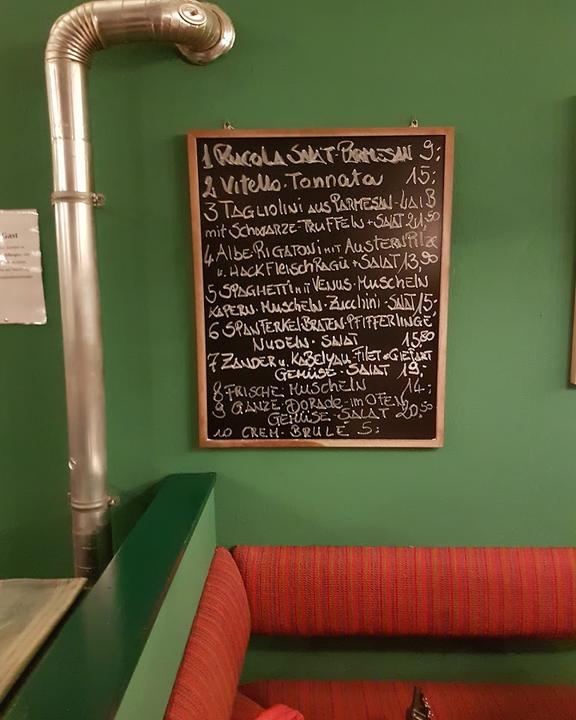 1 RUCOLA SALAT-PARMESAN 9:
2 Vitello-Tonnata 15:
3 TAGLIOLINI AUS PARMESAN-LAIB
mit SCHWARZE-TRUFFELN + SALAT 21,50
4 ALBE RIGATONI mit AUSTERNPILZE
u. HACKFLEISCHRAGÜ + SALAT 13,90
5 SPAGHETTI mit VENUS-MUSCHELN
KAPERN-MUSCHELN-ZUCCHINI-SALAT 15:
6 SPANFERKELBRATEN-PFIFFERLINGE
NUDELN-SALAT 15,80
7 ZANDER u. KABELJAU-FILET
GEMÜSE-SALAT 19:
8 FRISCHE MUSCHELN 14:
9 GANZE DORADE-IM OFEN
GEMÜSE-SALAT 20,50
10 CREM-BRULE 5:
Gast